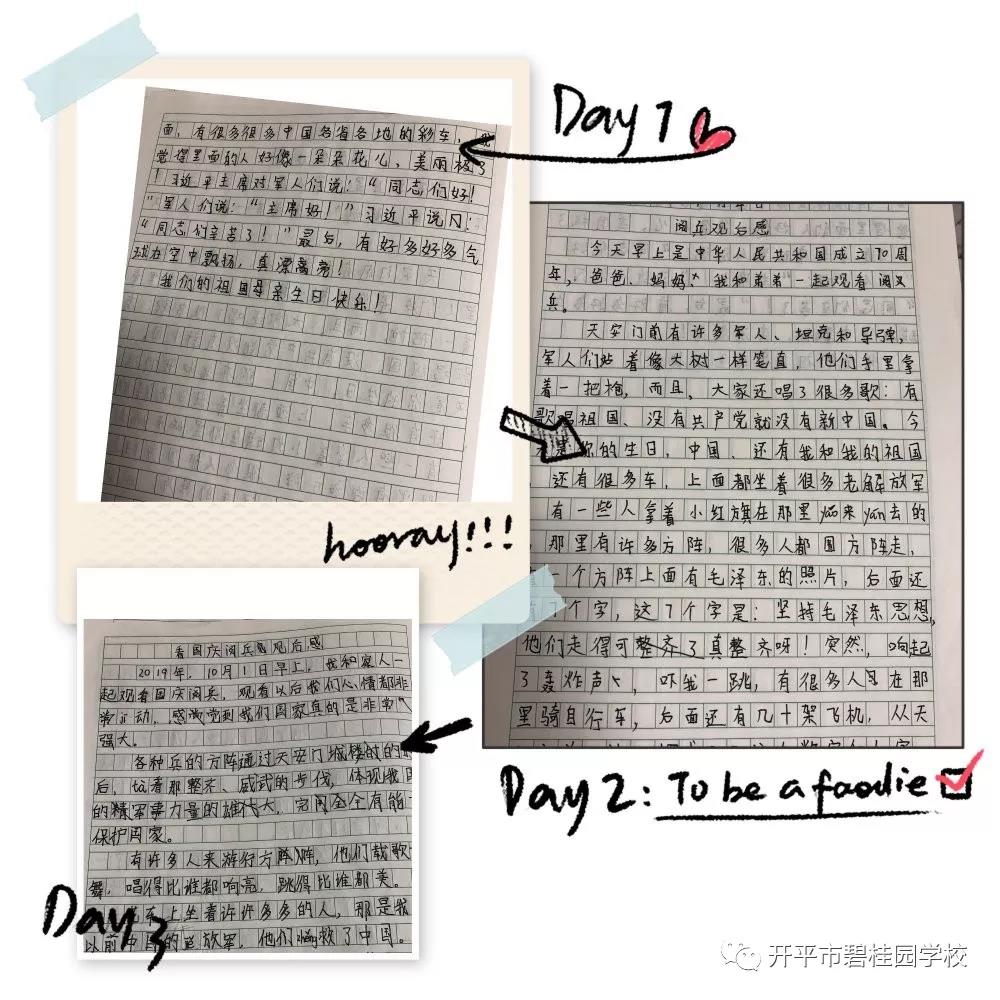 Day 1
面，有很多很多中国各省各地的彩车，我
觉得里面的人好像一朵朵花儿、美丽极了
！习近平主席对军人们说：“同志们好！
”军人们说：“主席好！”习近平说
“同志们辛苦了！”最后，有好多好多气
球在空中飘扬，真漂亮！
我们的祖国母亲生日快乐！
hooray!!!
阅兵观后感
今天早上是中华人民共和国成立70周
年，爸爸、妈妈、我和弟弟一起观看阅
兵。
天安门前有许多军人、坦克和导弹，
军人们站着像大树一样笔直，他们手里拿
着一把枪，而且，大家还唱了很多歌：有
歌唱祖国、没有共产党就没有新中国。今
你的生日，中国、还有我和我的祖国
还有很多车，上面都坐着很多老解放军
有一些人拿着小红旗在那里yáo来yáo去的
那里有许多方阵，很多人都围方阵走，
一个方阵上面有毛泽东的照片，后面还
7个字，这7个字是：坚持毛泽东思想，
他们走得可整齐了真整齐呀！突然，响起
了轰炸声，吓我一跳，有很多人在那
里骑自行车，后面还有几十架飞机，从天
Day2: To be a foodie
看国庆阅兵观后感
2019年，10月1日早上，我和家人一
起观看国庆阅兵，观看以后我们心情都非
常激动，感觉到我们国家真的是非常
强大。
各种兵的方阵通过天安门城楼时的
后，踏着那整齐、威武的步伐，体现我国
的精军事力量的雄伟大，完全有能
保护国家。
有许多人来游行方阵，他们载歌
舞，唱得比谁都响亮，跳得比谁都美。
车上坐着许许多多的人，那是我
以前中国的解放军，他们拯救了中国。
Day 3
开平市碧桂园学校